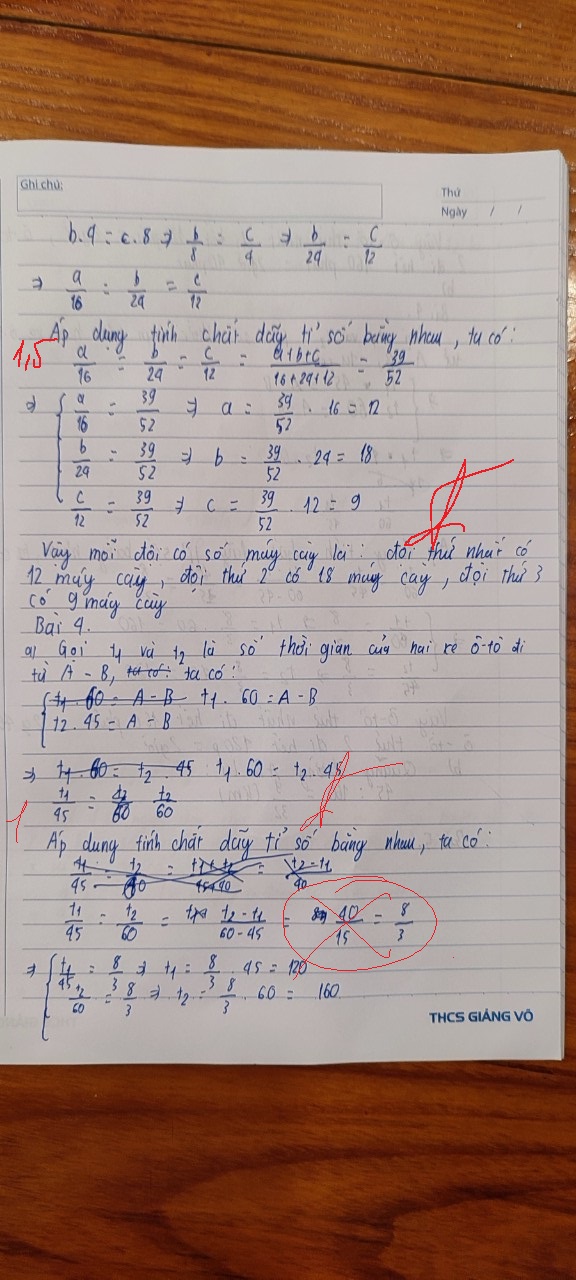 Ghi chú:
Thứ
Ngày / /
b.4 = c.8 => b/8 = c/4 => b/24 = c/12
=> a/16 = b/24 = c/12
Áp dụng tính chất dãy tỉ số bằng nhau, ta có:
1,5
a/16 = b/24 = c/12 = a+b+c/16+24+12 = 39/52
=> { a/16 = 39/52 => a = 39/52 . 16 = 12
b/24 = 39/52 => b = 39/52 . 24 = 18
c/12 = 39/52 => c = 39/52 . 12 = 9
Vậy mỗi đội có số máy cày là: đội thứ nhất có
12 máy cày, đội thứ 2 có 18 máy cày, đội thứ 3
có 9 máy cày
Bài 4.
a) Gọi t1 và t2 là số thời gian của hai xe ô-tô đi
từ A - B, ta có: ta có:
{ t1. 60 = A - B t1. 60 = A - B
t2. 45 = A - B
=> t1. 60 = t2. 45 : t1. 60 = t2. 45
1
t1/45 = t2/60 t2/60
Áp dụng tính chất dãy tỉ số bằng nhau, ta có:
t1/45 = t2/60 = t2-t1/60-45 = 40/15 = 8/3
=> { t1/45 = 8/3 => t1 = 8/3 . 45 = 120
t2/60 = 8/3 => t2 = 8/3 . 60 = 160
THCS GIẢNG VÕ